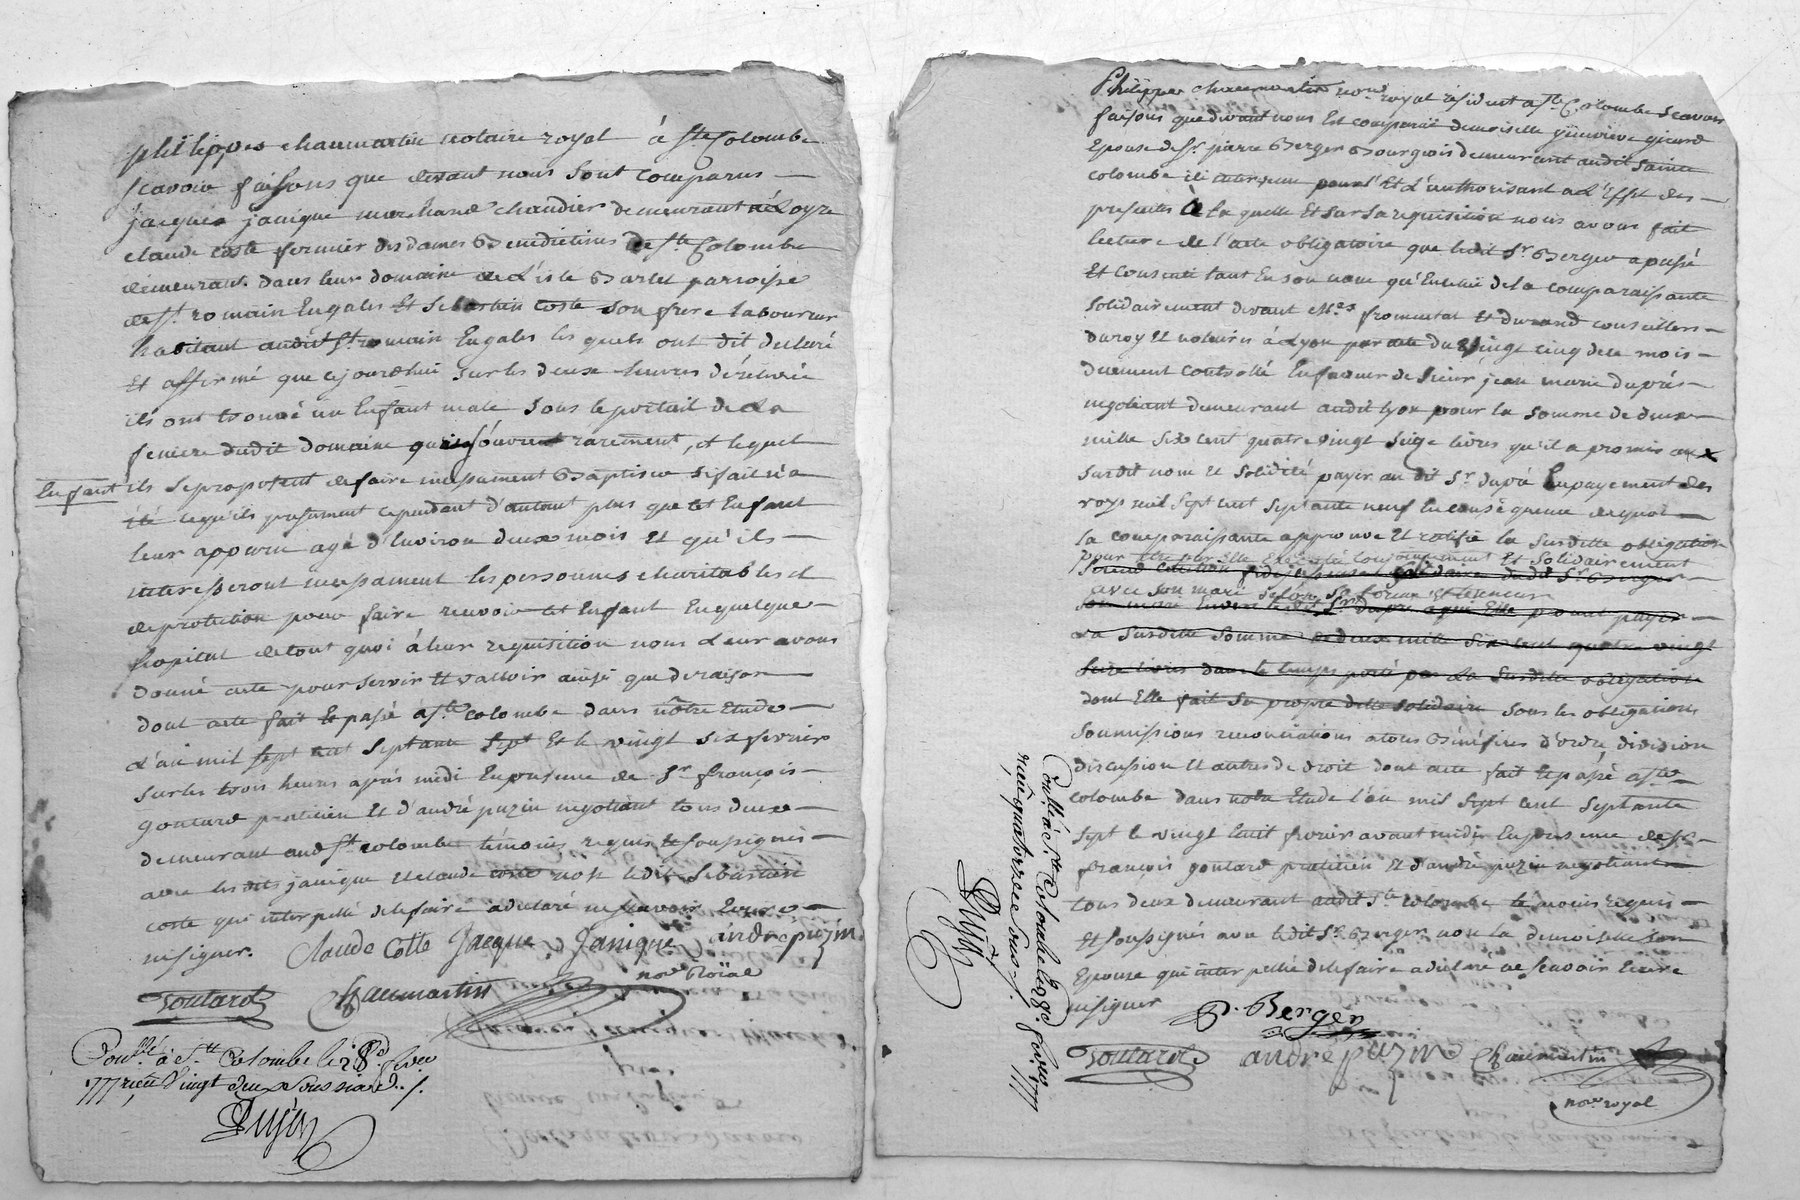 philippes chaumartin notaire royal à ste Colombe
scavoir faisons que devant nous sont comparus
jacques janique marchand chandier demeurant a Loyre
claude coste fermier des dames Benedictines de ste Colombe
demeurant dans leur domaine de L'isle Barlet parroisse
de st romain Engales Et Sebastien coste son frere Laboureur
habitant audit st romain Engales les quels ont dit declaré
Et affirmé que cejourdhui sur les deux heures de relevée
ils ont trouvé un Enfant male sous le portail de La
feniere dudit domaine qui s'ouvrent rarement, et lequel
Enfant ils se proposent de faire incessament Baptiser si fait n'a
été ce qu'ils presument cependant d'autant plus que cet Enfant
leur apparu agé d'Environ deux mois Et qu'ils
interesseront incessament les personnes charitables et
de protection pour faire recevoir cet Enfant En quelque
hopital de tout quoi à leur requisition nous Leur avons
donné acte pour servir Et valloir ainsi que de raison
dont acte fait Et passé a ste colombe dans nôtre Etude
L'an mil sept cent septante sept Et le vingt six fevrier
sur les trois heures après midi En presence de sr françois
goutard praticien Et d'andré puzin negotiant tous deux
demeurant aud ste colombe témoins requis Et soussignés
avec lesdits janique Et claude coste non ledit Sebastien
coste qui interpellé de le faire a declaré ne scavoir Ecrire
ni signer. Claude Coste Jacque Janique andré puzin
Goutard Chaumartin nore Roïal
Conllé à Ste Colombe le 28e fevrier
1777 reçu Vingt deux sous six d. /.
Dujast
Philippes chaumartin nore royal résident a ste Colombe Scavoir
faisons que devant nous Est comparüe demoiselle genevieve girard
Epouse de sr pierre Berger Bourgeois demeurant audit Sainte
colombe ici intervenu pour l'Et L'authorisant a L'Effet des
presentes à la quelle Et sur sa requisition nous avons fait
lecture de l'acte obligatoire que ledit sr Berger a passé
Et consenti tant En son nom qu'En celui de la comparaissante
solidairement devant Mes fromental Et durand conseillers
du roy Et notaires à Lyon par acte du vingt cinq de ce mois
duement controllé En faveur de sieur jean marie dupré
negotiant demeurant audit lyon pour la somme de deux
mille six cent quatre vingt seize livres qu'il a promis aux
susdit nom Et solidité payer au dit sr dupré En payement des
roys mil sept cent septante neuf En conséquence de quoi
la comparaissante approuve Et ratifie la susditte obligation
pour Etre par Elle Exécuté conjointement Et Solidairement
se rend caution fidejusseur solidaire dudit sr Berger
avec son mari selon sa forme Et teneur
son mari Envers ledit sr dupré a qui Elle promet payer
La Susditte Somme de deux mille six cent quatre vingt
seize livres dans le temps porté par La susditte obligation
dont Elle fait sa propre dette solidaire sous les obligations
soumissions renonciations a tous Bénéfices d'ordre, division
discussion Et autres de droit dont acte fait Et passé a ste
colombe dans notre Etude l'an mil sept cent septante
sept le vingt huit fevrier avant midi En presence de sr
françois goutard praticien Et d'andré puzin negotiant
tous deux demeurant audit ste colombe témoins requis
Et soussignés avec ledit sr Berger non la demoiselle son
Epouse qui interpellée de le faire a declaré ne scavoir Ecrire
ni signer
P. Berger
Goutard andré puzin Chaumartin
nore royal
Conllé à Ste Colombe le 28e fevrier 1777
reçu quatorze Sous /.
Dujast